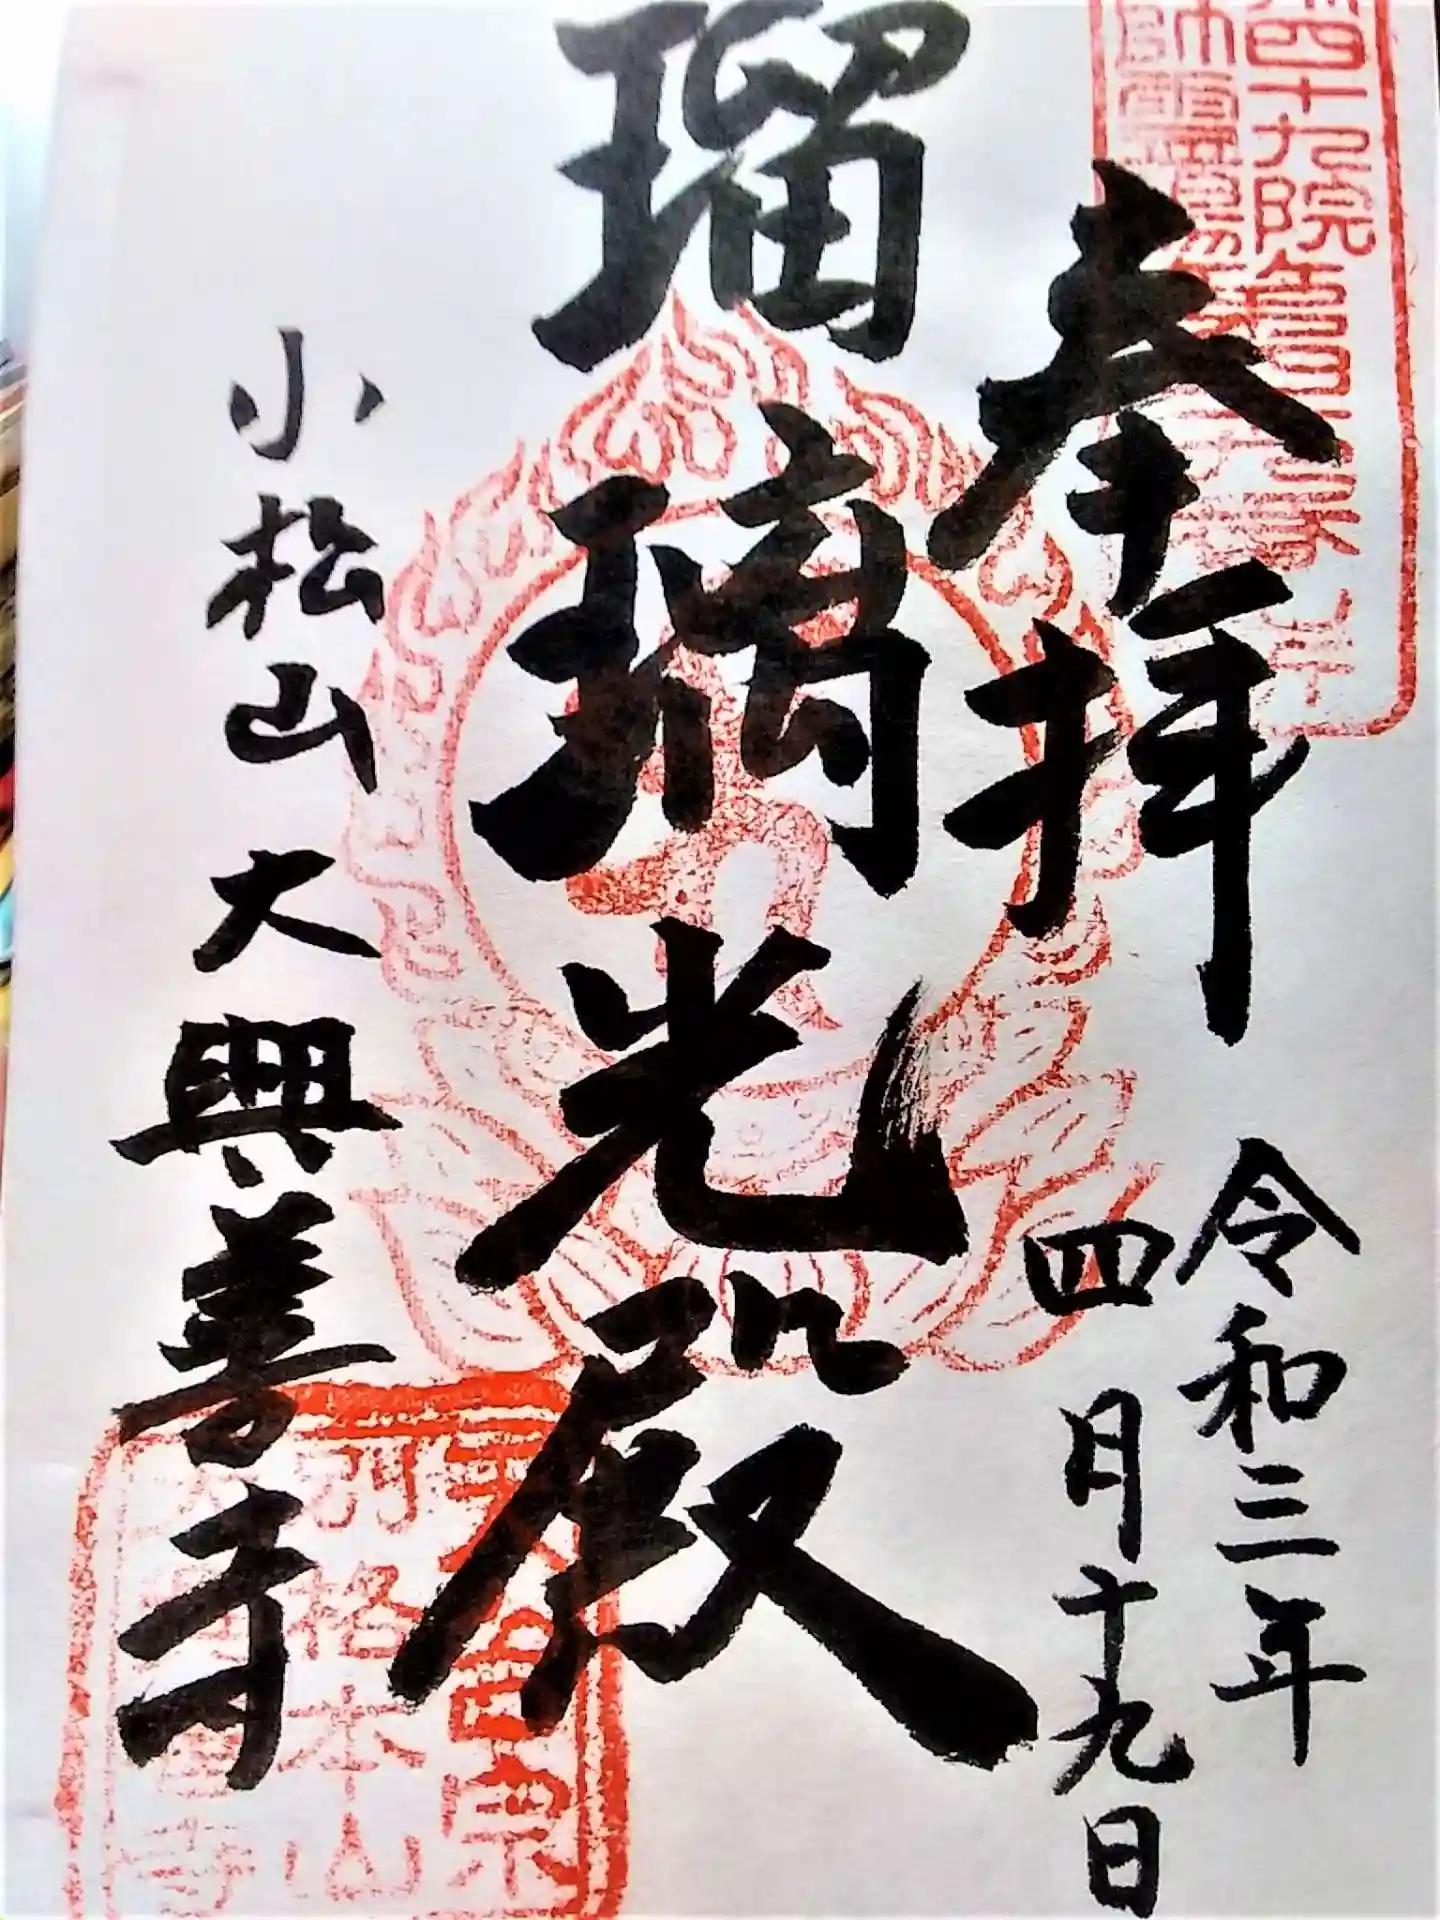 四十九院
奉拝
令和三年
四月十九日
瑠璃光殿
小松山大興善寺
別格本山